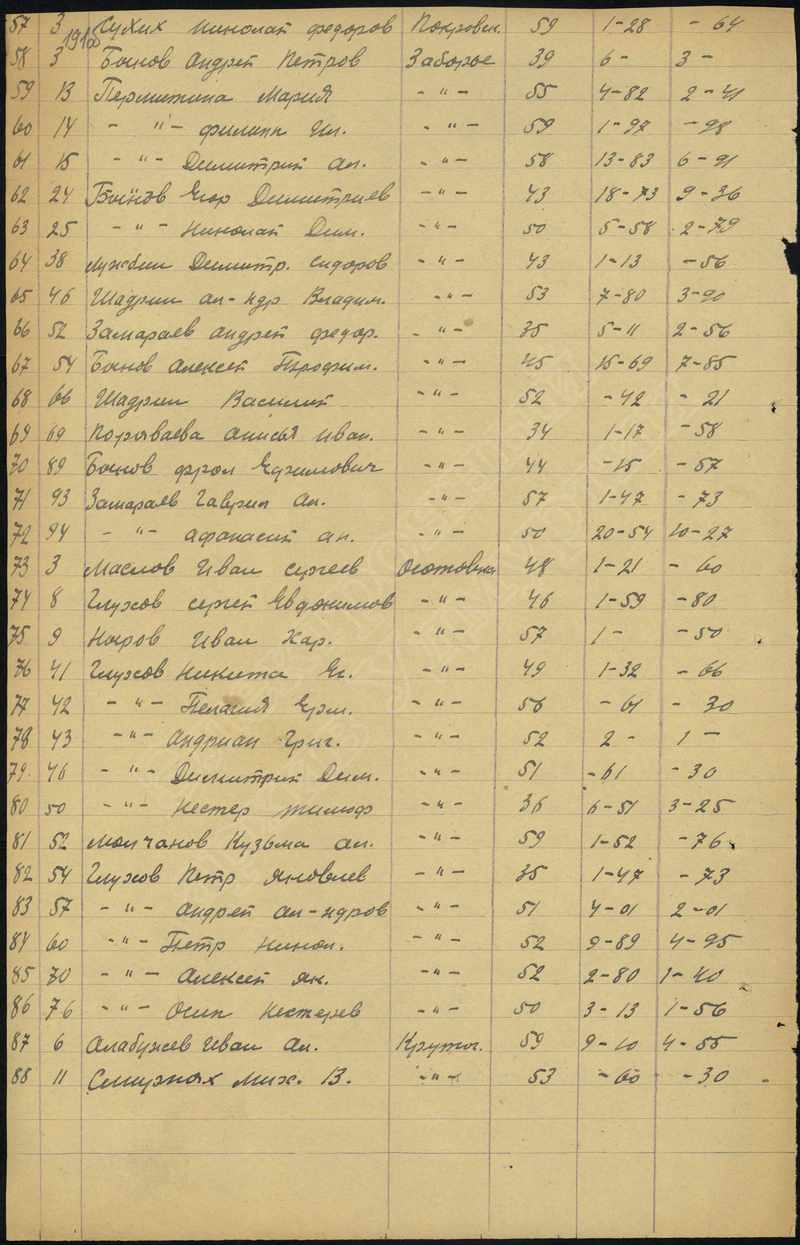 57 3 Сухих Николай Федоров Покровск. 59 1-28 -64
1910
58 3 Боков Андрей Петров Заборое 39 6- 3-
59 13 Пермитина Мария -"- 55 4-82 2-41
60 14 -"- Филипп Ил. -"- 59 1-97 -98
61 15 -"- Димитрий Ал. -"- 58 13-83 6-91
62 24 Егор Димитриев -"- 43 18-73 9-36
63 25 -"- Николай Дим. -"- 50 5-58 2-79
64 38 Димитр. Сидоров -"- 43 1-13 -56
65 46 Шадрин Ал-ндр Владим. -"- 53 7-80 3-90
66 52 Замараев Андрей Федор. -"- 35 5-11 2-56
67 54 Боков Алексей Трофим. -"- 45 15-69 7-85
68 66 Шадрин Василий -"- 52 -42 -21
69 69 Порываева Анисья Иван. -"- 34 1-17 -58
70 89 Боков Фрол Ефимович -"- 44 -15 -57
71 93 Замараев Гаврил Ал. -"- 57 1-47 -73
72 94 -"- Афанасий Ал. -"- 50 20-54 10-27
73 3 Маслов Иван Сергеев 48 1-21 -60
74 8 Глухов Сергей Евдокимов -"- 46 1-59 -80
75 9 Иван Хар. -"- 57 1- -50
76 41 Глухов Никита Ег. -"- 49 1-32 -66
77 42 -"- Пелагия Ерм. -"- 56 -61 -30
78 43 -"- Андриан Григ. -"- 52 2- 1-
79. 46 -"- Димитрий Дим. -"- 51 -61 -30
80 50 -"- Нестер Тимоф -"- 36 6-51 3-25
81 52 Молчанов Кузьма Ал. -"- 59 1-52 -76
82 54 Глухов Петр Яковлев -"- 35 1-47 -73
83 57 -"- Андрей Ал-ндров -"- 51 4-01 2-01
84 60 -"- Петр Никол. -"- 52 9-89 4-95
85 70 -"- Алексей Як. -"- 52 2-80 1-40
86 76 -"- Осип Нестерев -"- 50 3-13 1-56
87 6 Алабужев Иван Ал. Крутих. 59 9-10 4-55
88 11 Смирных Мих. В. -"- 53 -60 -30